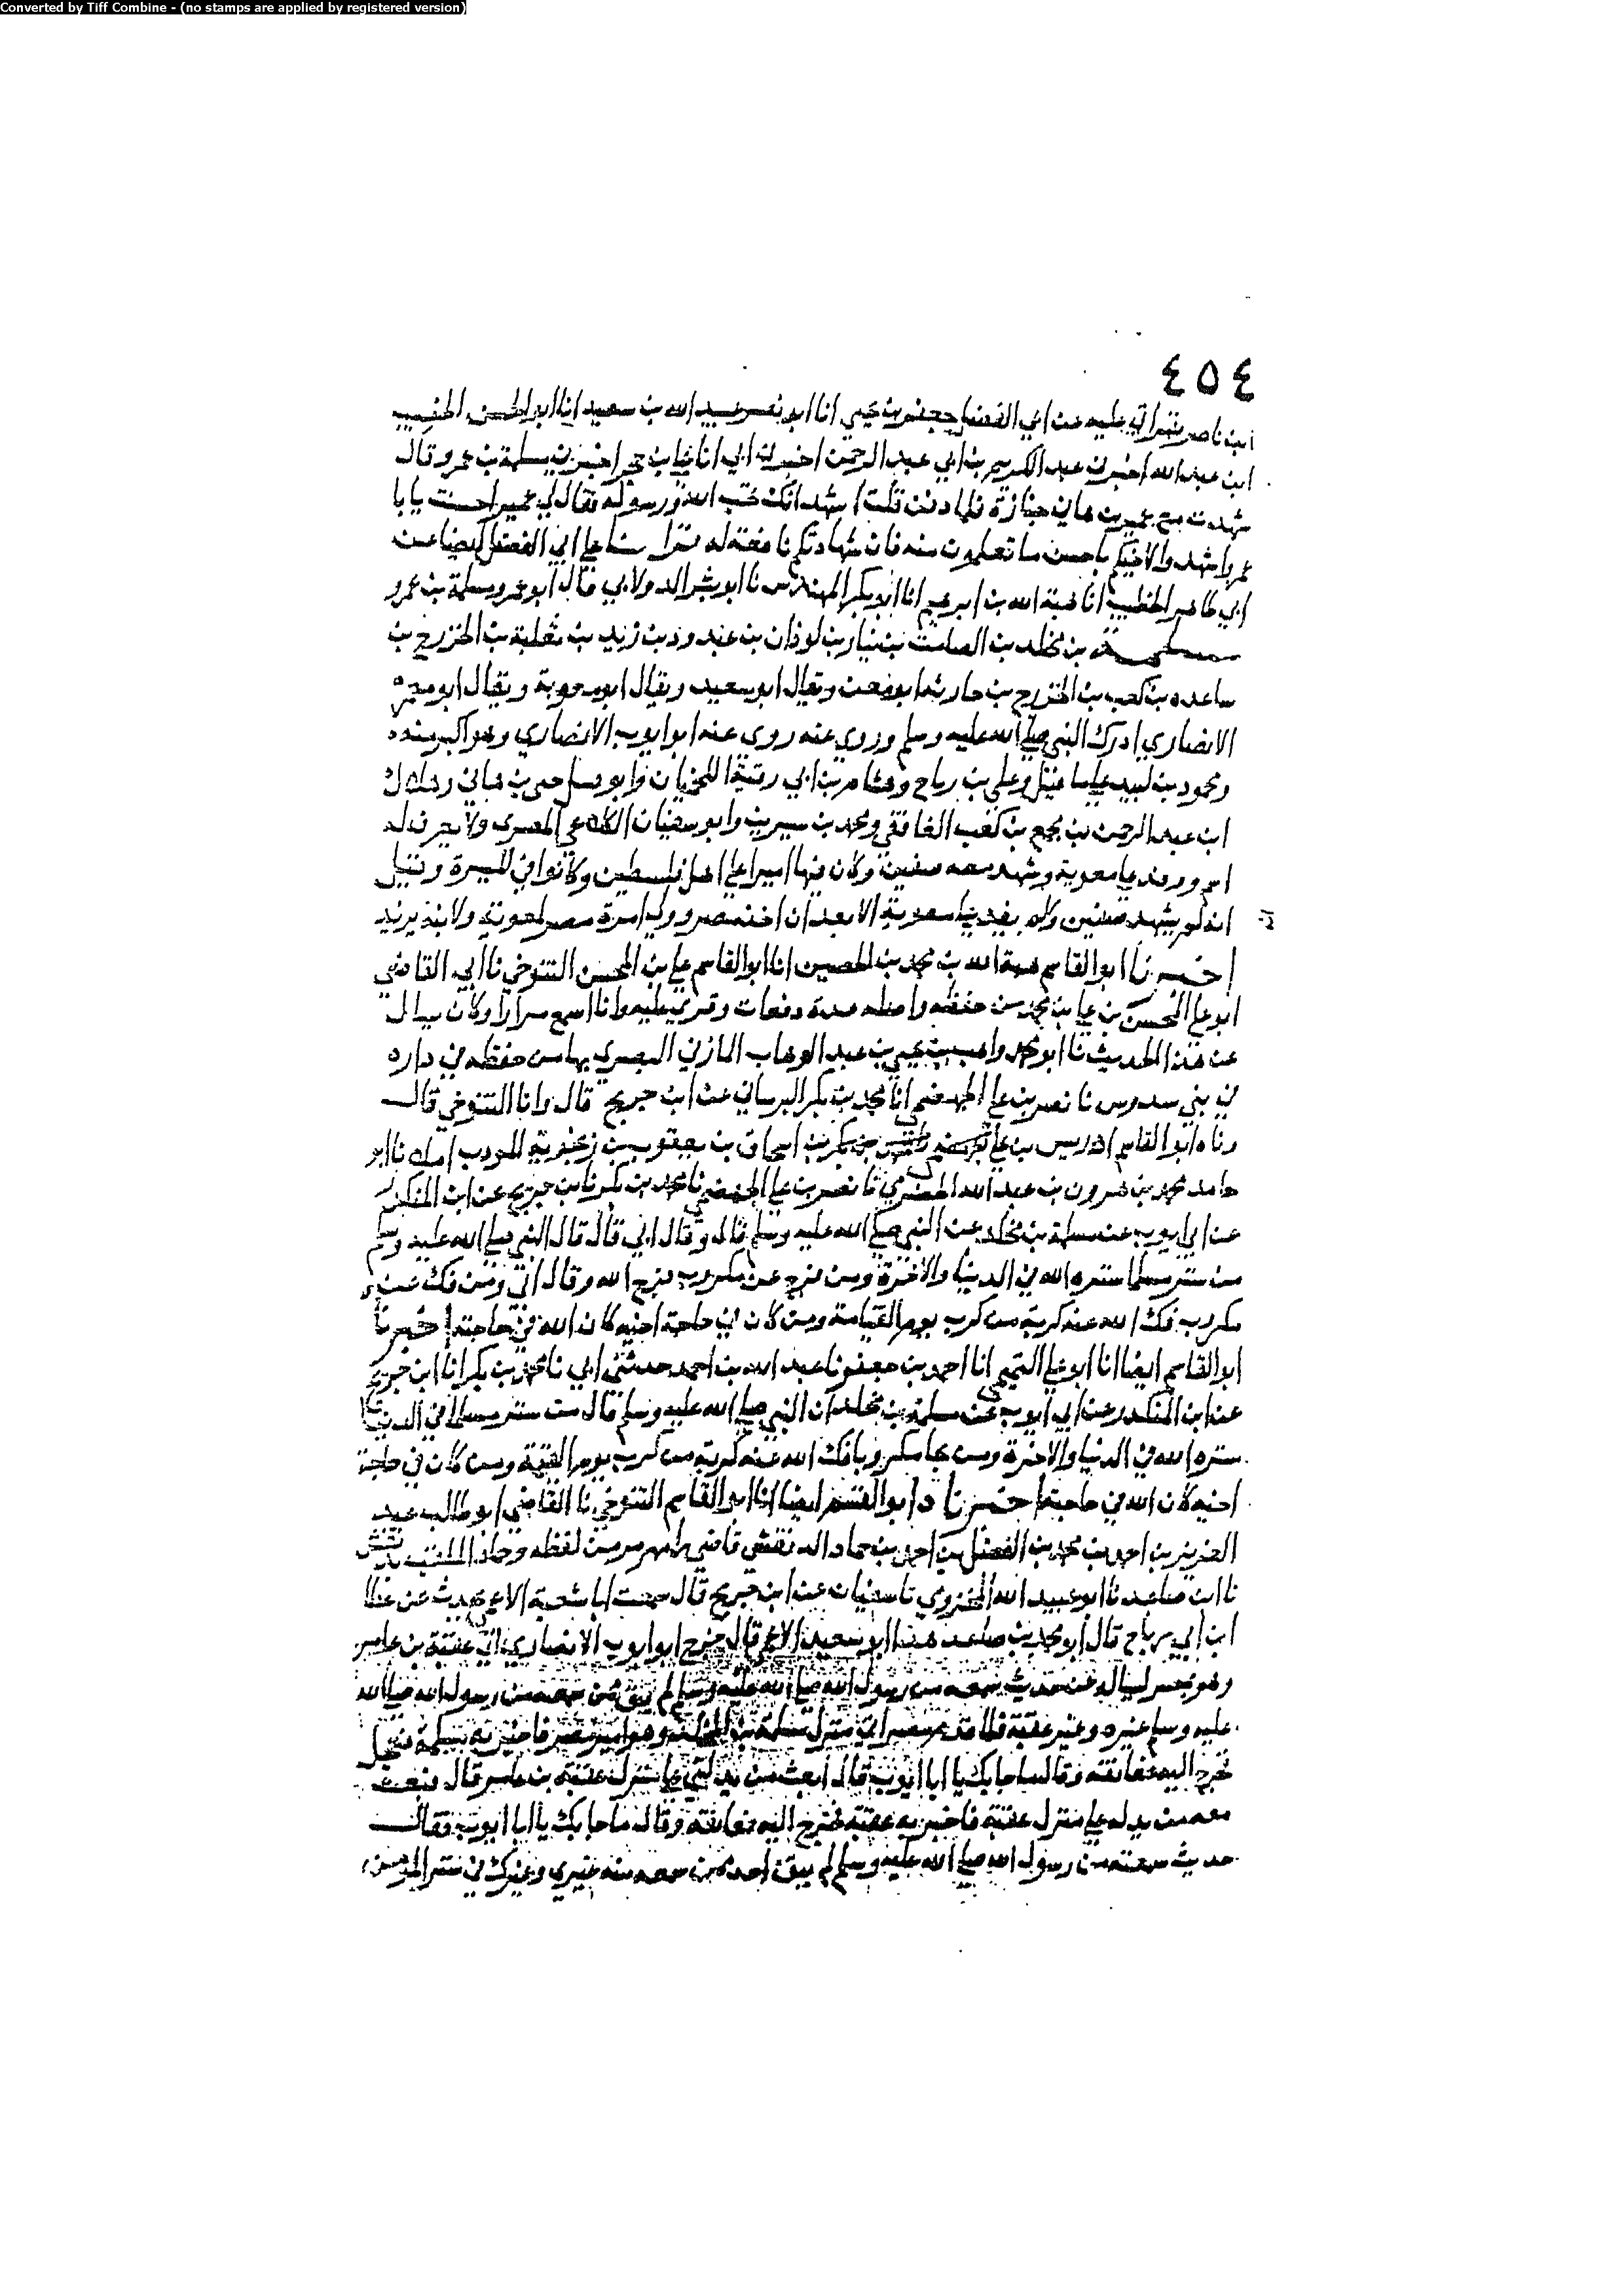 Converted by Tiff Combine - (no stamps are applied by registered version)
٤٥٤
ابن ناصر بقراتي عليه عن ابي الفضل جعفر بن يحيى انا ابو نصر عبيد الله بن سعيد انا ابو الحسن الخصيب
ابن عبد الله اخبرني عبد الكريم بن ابي عبد الرحمن اخبرني ابي انا علي بن حجر اخبرني مسلمة بن عمرو قال
شهدت مع عمير بن هاني جنازة فلما دفنت قلت اشهد انك تحب الله ورسوله فقال لي عمير احسنت يابا
عمرو اشهدوا لاخيكم باحسن ما تعلمون منه فان شهادتكم نافعة له قرات على ابي الفضل ايضا عن
ابي طاهر الخطيب انا هبة الله بن ابرهيم انا ابو بكر المهندس نا ابو بشر الدولابي قال ابو عمرو مسلمة بن عمرو
مسلمة بن مخلد بن الصامت بن نيار بن لوذان بن عبد ود بن زيد بن ثعلبة بن الخزرج بن
ساعده بن كعب بن الخزرج بن حارثة ابو معن ويقال ابو سعيد ويقال ابو معوية ويقال ابو معمر
الانصاري ادرك النبي صلى الله عليه وسلم وروى عنه روى عنه ابو ايوب الانصاري وهو اكبر منه
ومحمود بن لبيد وعلي بن رباح وهشام بن ابي رقية اللخميان وابو قبيل حيي بن هاني وهلال
ابن عبد الرحمن بن مجمع بن كعب الغافقي ومحمد بن سيرين وابو سفيان الكلاعي المصري ولا يعرف له
اسم ووفد على معوية وشهد معه صفين وكان فيها اميرا على اهل فلسطين وكانوا في الميسرة وقيل
انه لم يشهد صفين ولم يفد على معوية الا بعد ان اخذ مصر وولي امرة مصر لمعوية ولابنه يزيد
اخبرنا ابو القاسم هبة الله بن محمد بن الحصين انا ابو القاسم علي بن المحسن التنوخي نا ابي القاضي
ابو علي المحسن بن علي بن محمد من حفظه واصله عدة دفعات وقرى عليه وانا اسمع مرارا وكان يسال
عن هذا الحديث نا ابو محمد واهب بن يحيى بن عبد الوهاب المازني البصري بها من حفظه في داره
في بني سدوس نا نصر بن علي الجهضمي انا محمد بن بكر البرساني عن ابن جريج قال وانا التنوخي قال
وناه ابو القاسم ادريس بن علي بن اسحاق بن يعقوب بن زنجويه المودب املا نا ابو
حامد محمد بن هرون بن عبد الله الحضرمي نا نصر بن علي الجهضمي نا محمد بن بكر نا ابن جريج عن ابن المنكدر
عن ابي ايوب عن مسلمة بن مخلد عن النبي صلى الله عليه وسلم قال وقال ابي قال قال النبي صلى الله عليه وسلم
من ستر مسلما ستره الله في الدنيا والاخرة ومن فرج عن مكروب فرج الله وقال ابي ومن فك عن
مكروب فك الله عنه كربة من كرب يوم القيامة ومن كان في حاجة اخيه كان الله في حاجته اخبرنا
ابو القاسم ايضا انا ابو علي التميمي انا احمد بن جعفر نا عبد الله بن احمد حدثني ابي نا محمد بن بكر انا ابن جريج
عن ابن المنكدر عن ابي ايوب عن مسلمة بن مخلد ان النبي صلى الله عليه وسلم قال من ستر مسلما في الدنيا
ستره الله في الدنيا والاخرة ومن نجا مكروبا فك الله عنه كربة من كرب يوم القيمة ومن كان في حاجة
اخيه كان الله في حاجته اخبرنا ابو القسم ايضا انا ابو القاسم التنوخي نا القاضي ابو طالب عبد
العزيز بن احمد بن محمد بن الفضل بن احمد بن حماد الدنقشي قاضي رامهرمز من لفظه وحماد الملقب بدنقش
نا ابن صاعد نا ابو عبيد الله المخزومي نا سفيان عن ابن جريج قال سمعت ابا شعبة الاعمى يحدث عن عطا
ابن ابي رباح قال ابو محمد بن صاعد هذا ابو سعيد الاعمى قال خرج ابو ايوب الانصاري الى عقبة بن عامر
وهو بمصر ليساله عن حديث سمعه من رسول الله صلى الله عليه وسلم لم يبق ممن سمعه من رسول الله صلى الله
عليه وسلم غيره وغير عقبة فلما قدم مصر اتى منزل مسلمة بن المخلد وهو امير مصر فاخبر به مسلمة فعجل
فخرج اليه فعانقه وقال ما جا بك يا ابا ايوب قال ابعث من يدلني على منزل عقبة بن عامر قال فبعث
معه من يدله على منزل عقبة فاخبر به عقبة فخرج اليه فعانقه وقال ما جا بك يا ابا ايوب فقال
حديث سمعته من رسول الله صلى الله عليه وسلم لم يبق احد ممن سمعه منه غيري وغيرك في ستر المومن